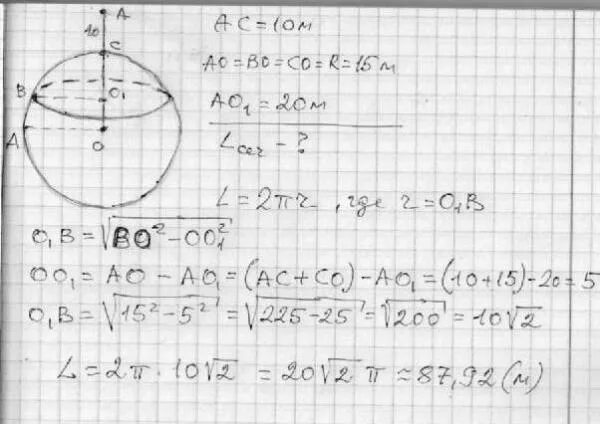 A
10
C
B
O₁
A
O
AC = 10м
AO = BO = CO = R = 15м
AO₁ = 20м
Lсеч - ?
L = 2πr , где r = O₁B
O₁B = √(BO² - OO₁²)
OO₁ = AO - AO₁ = (AC + CO) - AO₁ = (10+15) - 20 = 5
O₁B = √(15² - 5²) = √(225 - 25) = √200 = 10√2
L = 2π · 10√2 = 20√2 π ≈ 87,92 (м)